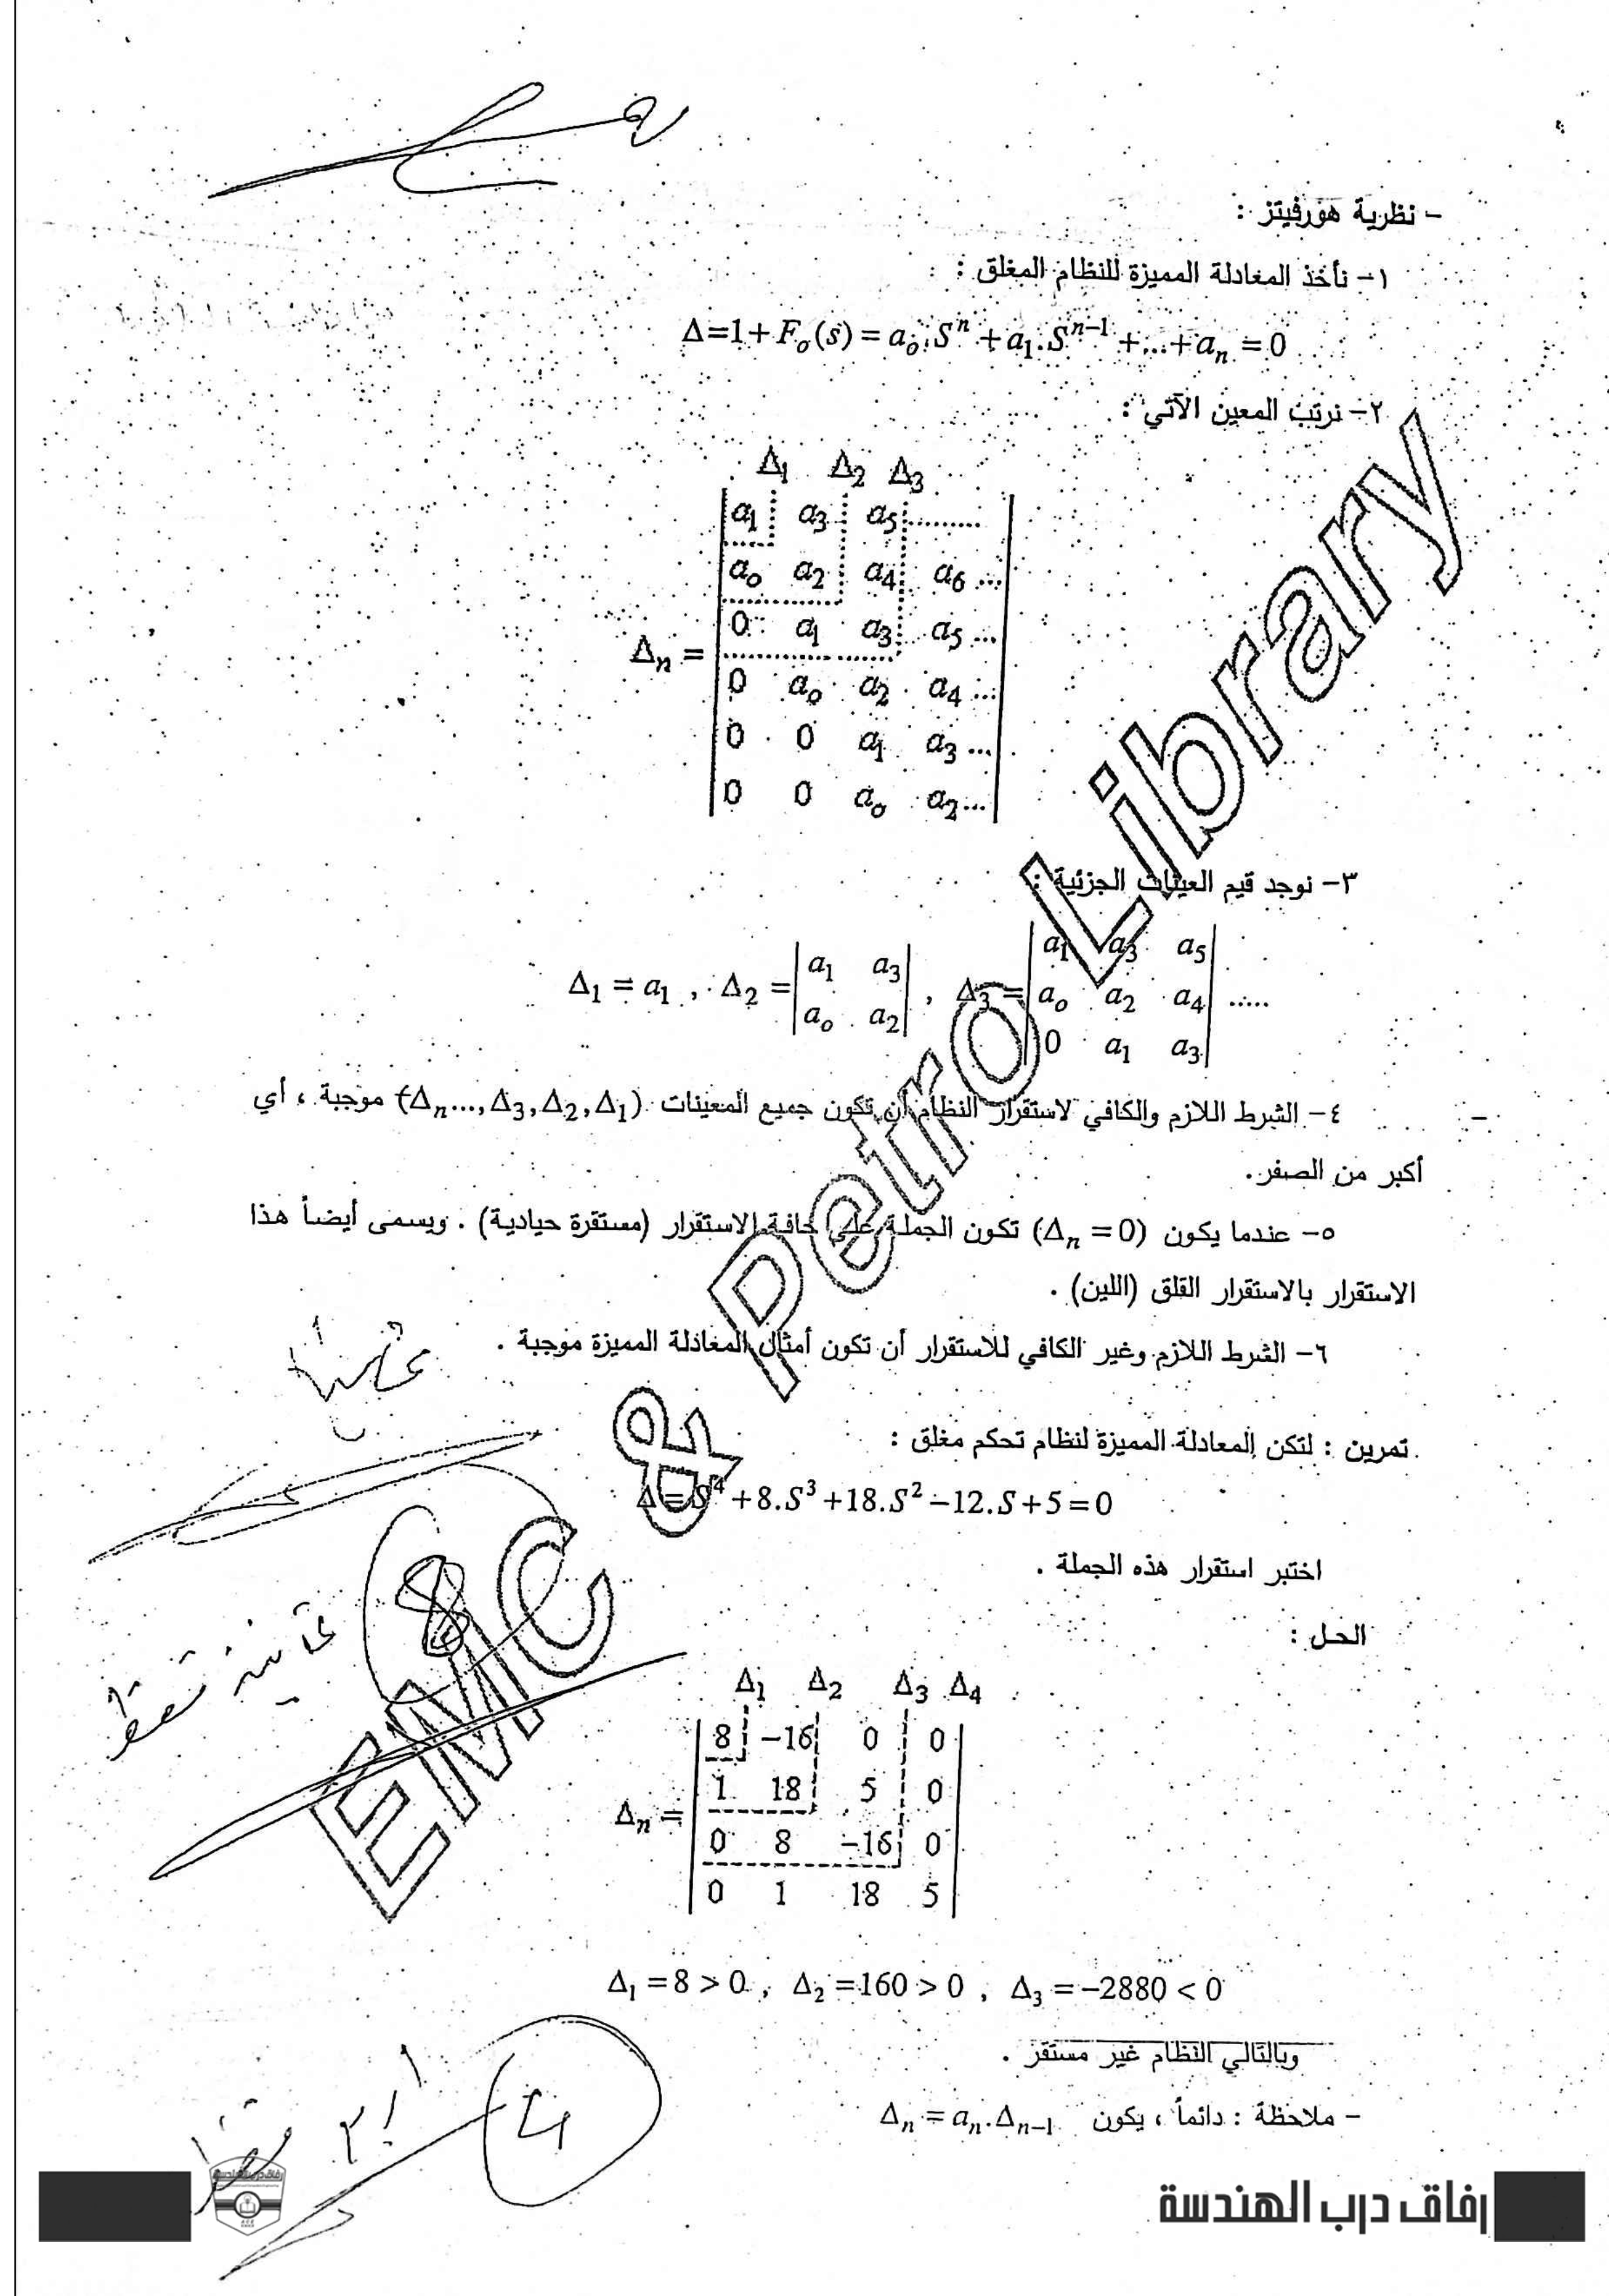 - نظرية هورفيتز :
١- نأخذ المعادلة المميزة للنظام المغلق :
Δ=1+F_o(s)=a_o.S^n+a_1.S^{n-1}+...+a_n=0
٢- نرتب المعين الآتي :
Δ_1 Δ_2 Δ_3
a_1 a_3 a_5 .........
a_o a_2 a_4 a_6 ...
0 a_1 a_3 a_5 ...
Δ_n =
0 a_o a_2 a_4 ...
0 0 a_1 a_3 ...
0 0 a_o a_2 ...
٣- نوجد قيم العينات الجزئية :
Δ_1 = a_1 , Δ_2 = |a_1 a_3; a_o a_2| , Δ_3 = |a_1 a_3 a_5; a_o a_2 a_4; 0 a_1 a_3| .....
٤- الشرط اللازم والكافي لاستقرار النظام أن تكون جميع المعينات (Δ_n...,Δ_3,Δ_2,Δ_1) موجبة ، أي
أكبر من الصفر.
٥- عندما يكون (Δ_n = 0) تكون الجملة على حافة الاستقرار (مستقرة حيادية) . ويسمى أيضاً هذا
الاستقرار بالاستقرار القلق (اللين) .
٦- الشرط اللازم وغير الكافي للاستقرار أن تكون أمثال المعادلة المميزة موجبة .
تمرين : لتكن المعادلة المميزة لنظام تحكم مغلق :
Δ=S^4+8.S^3+18.S^2-12.S+5=0
اختبر استقرار هذه الجملة .
8
الحل :
Δ_1 Δ_2 Δ_3 Δ_4
8 -16 0 0
1 18 5 0
Δ_n =
0 8 -16 0
0 1 18 5
Δ_1 = 8 > 0 , Δ_2 = 160 > 0 , Δ_3 = -2880 < 0
وبالتالي النظام غير مستقر .
- ملاحظة : دائماً ، يكون Δ_n = a_n.Δ_{n-1}
EMC & Petro Library
رفاق درب الهندسة